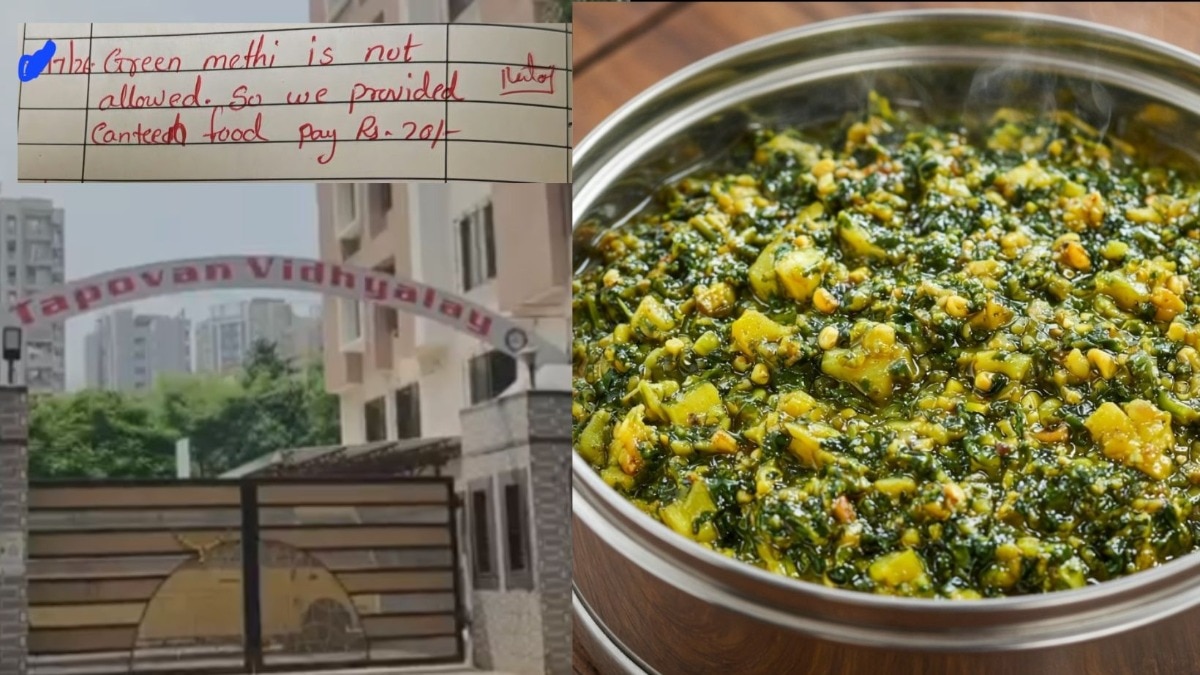 17/26 Green methi is not
allowed. So we provided
Canteen food pay Rs. 20/-
Tapovan Vidhyalay